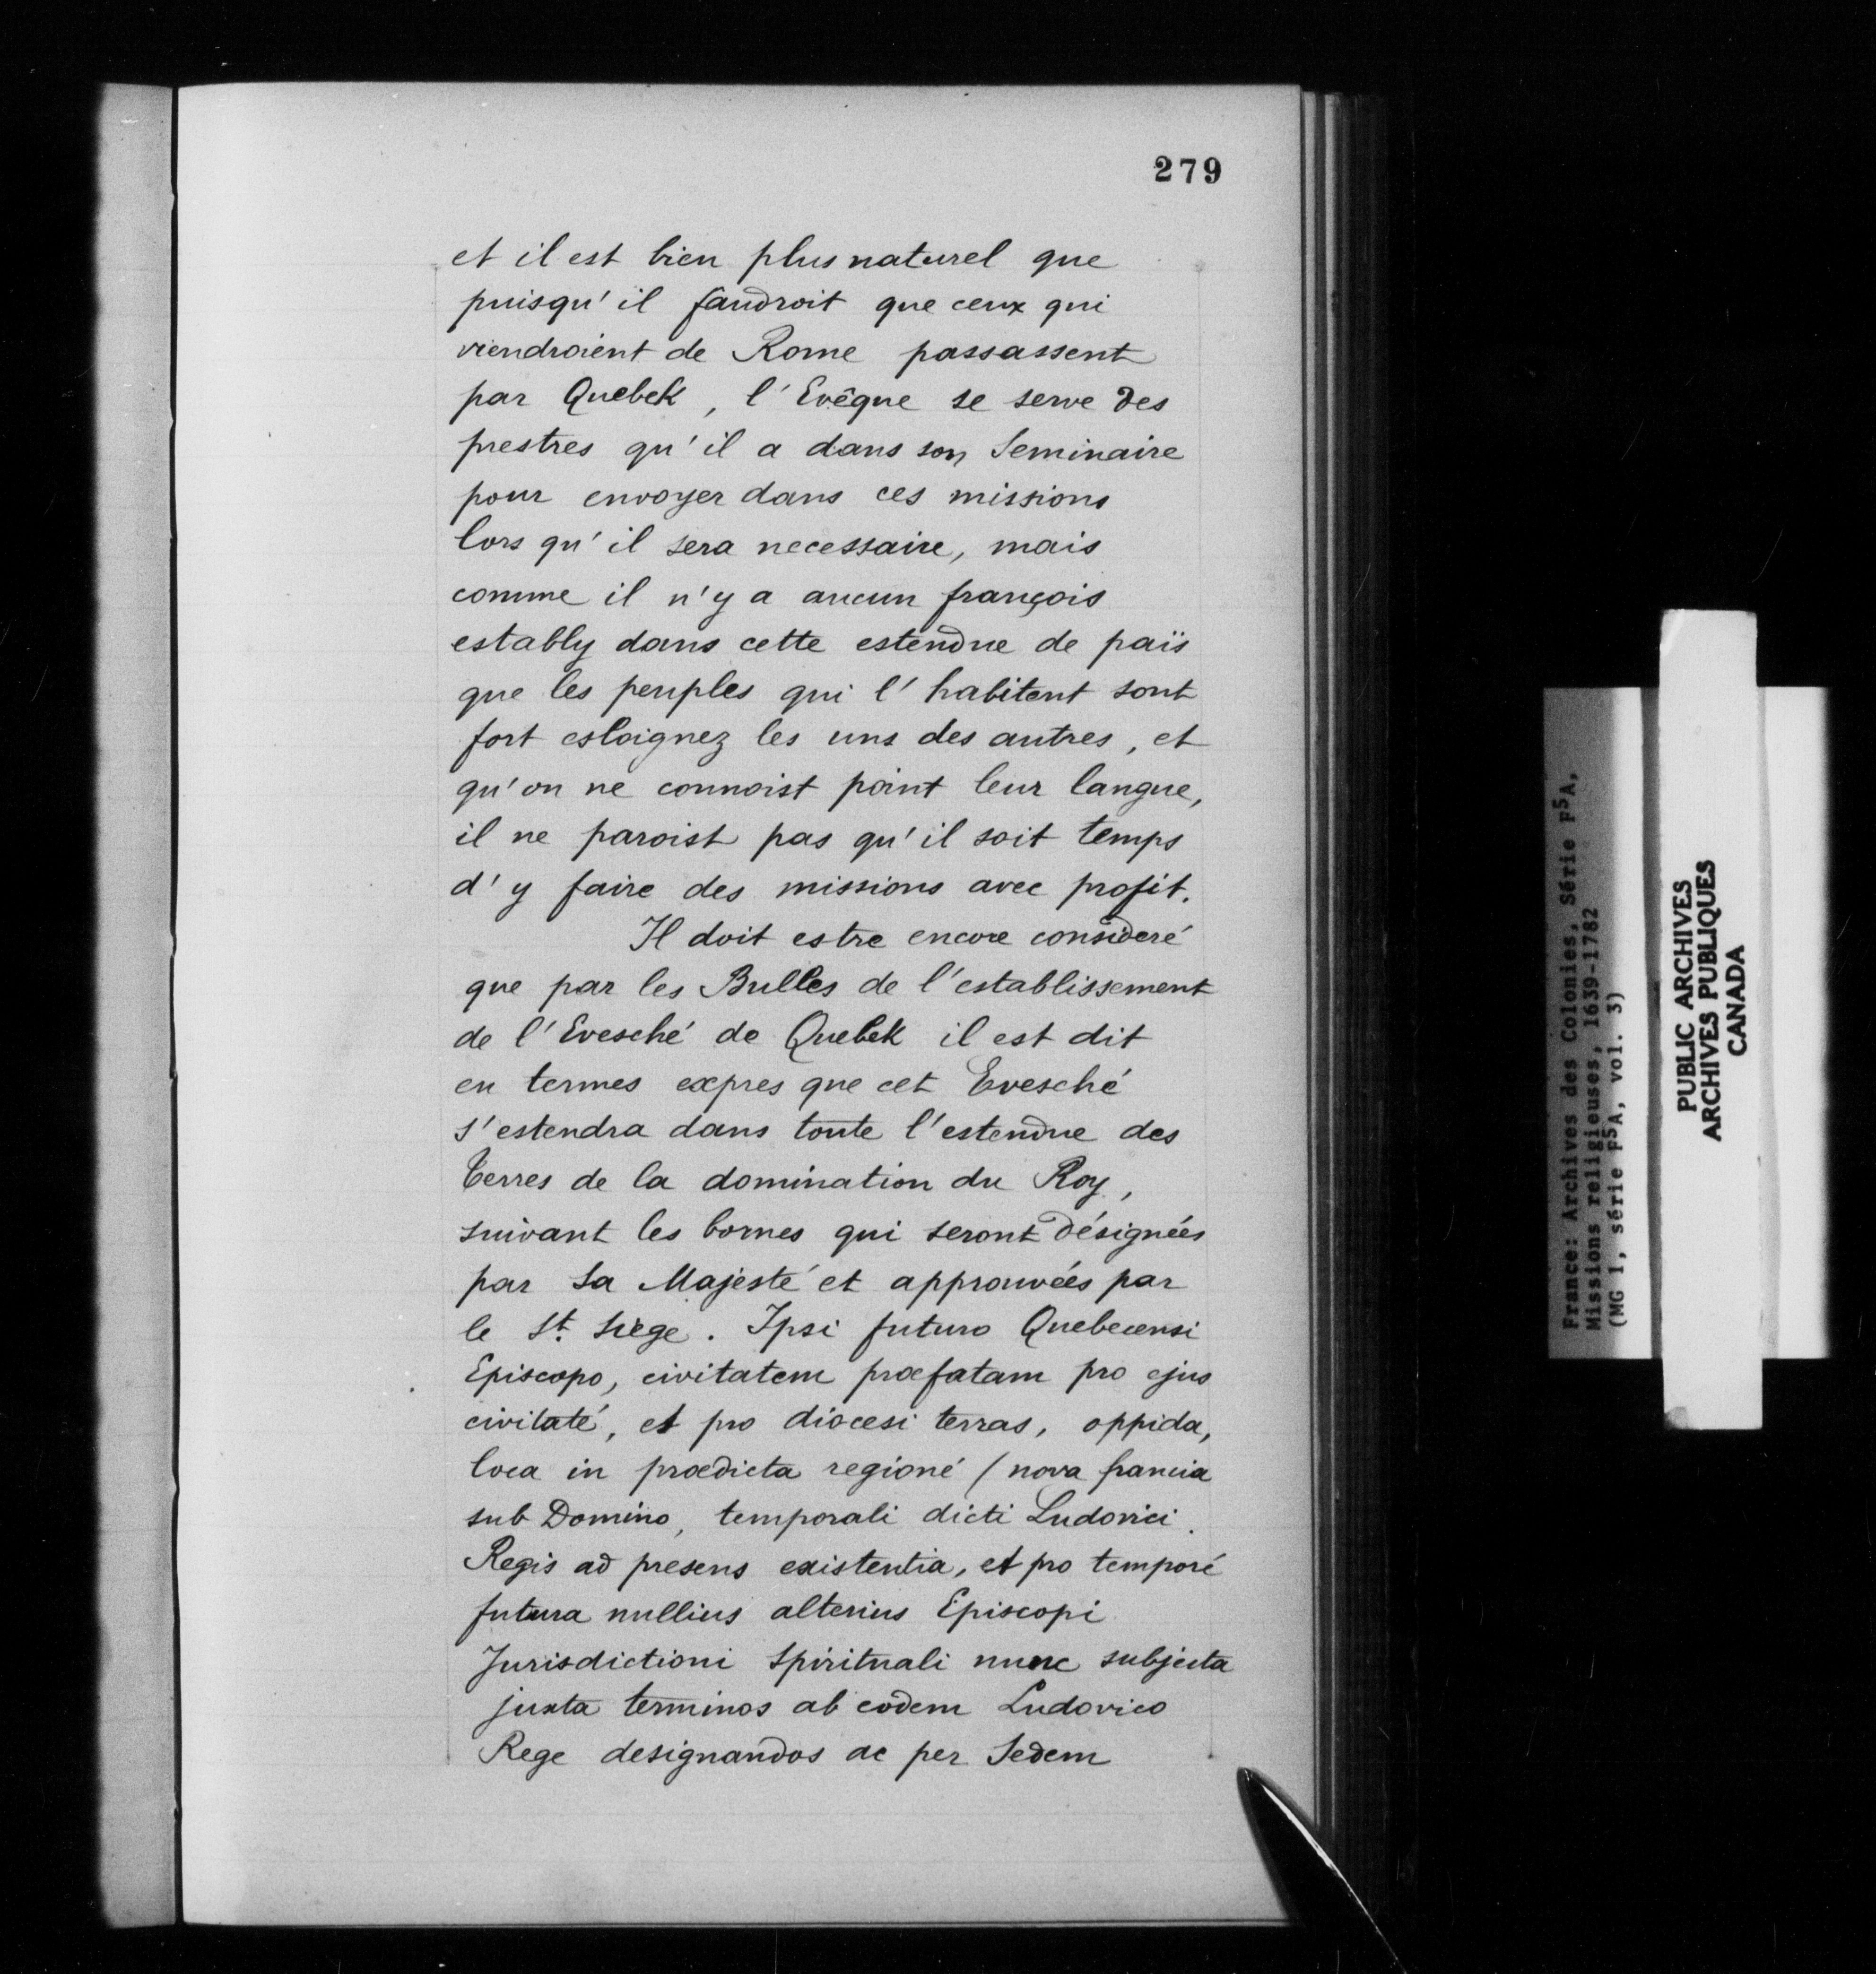 279
et il est bien plus naturel que
puisqu'il faudroit que ceux qui
viendroient de Rome passassent
par Quebek, l'Evêque se serve des
prestres qu'il a dans son Seminaire
pour envoyer dans ces missions
lors qu'il sera necessaire, mais
comme il n'y a aucun françois
estably dans cette estendue de païs
que les peuples qui l'habitent sont
fort esloignez les uns des autres, et
qu'on ne connoist point leur langue,
il ne paroist pas qu'il soit temps
d'y faire des missions avec profit.
Il doit estre encore consideré
que par les Bulles de l'establissement
de l'Evesché de Quebek il est dit
en termes expres que cet Evesché
s'estendra dans toute l'estendue des
Terres de la domination du Roy,
suivant les bornes qui seront désignées
par Sa Majesté et approuvées par
le St. Siège. Ipsi futuro Quebecensi
Episcopo, civitatem præfatam pro ejus
civitaté, et pro diocesi terras, oppida,
loca in prædicta regioné (nova francia
sub Domino, temporali dicti Ludovici.
Regis ad presens existentia, et pro temporé
futura nullius alterius Episcopi
Jurisdictioni Spirituali nunc subjecta
juxta terminos ab eodem Ludovico
Rege designandos ac per Sedem
France: Archives des Colonies, Série F5A,
Missions religieuses, 1639-1782
(MG 1, série F5A, vol. 3)
PUBLIC ARCHIVES
ARCHIVES PUBLIQUES
CANADA